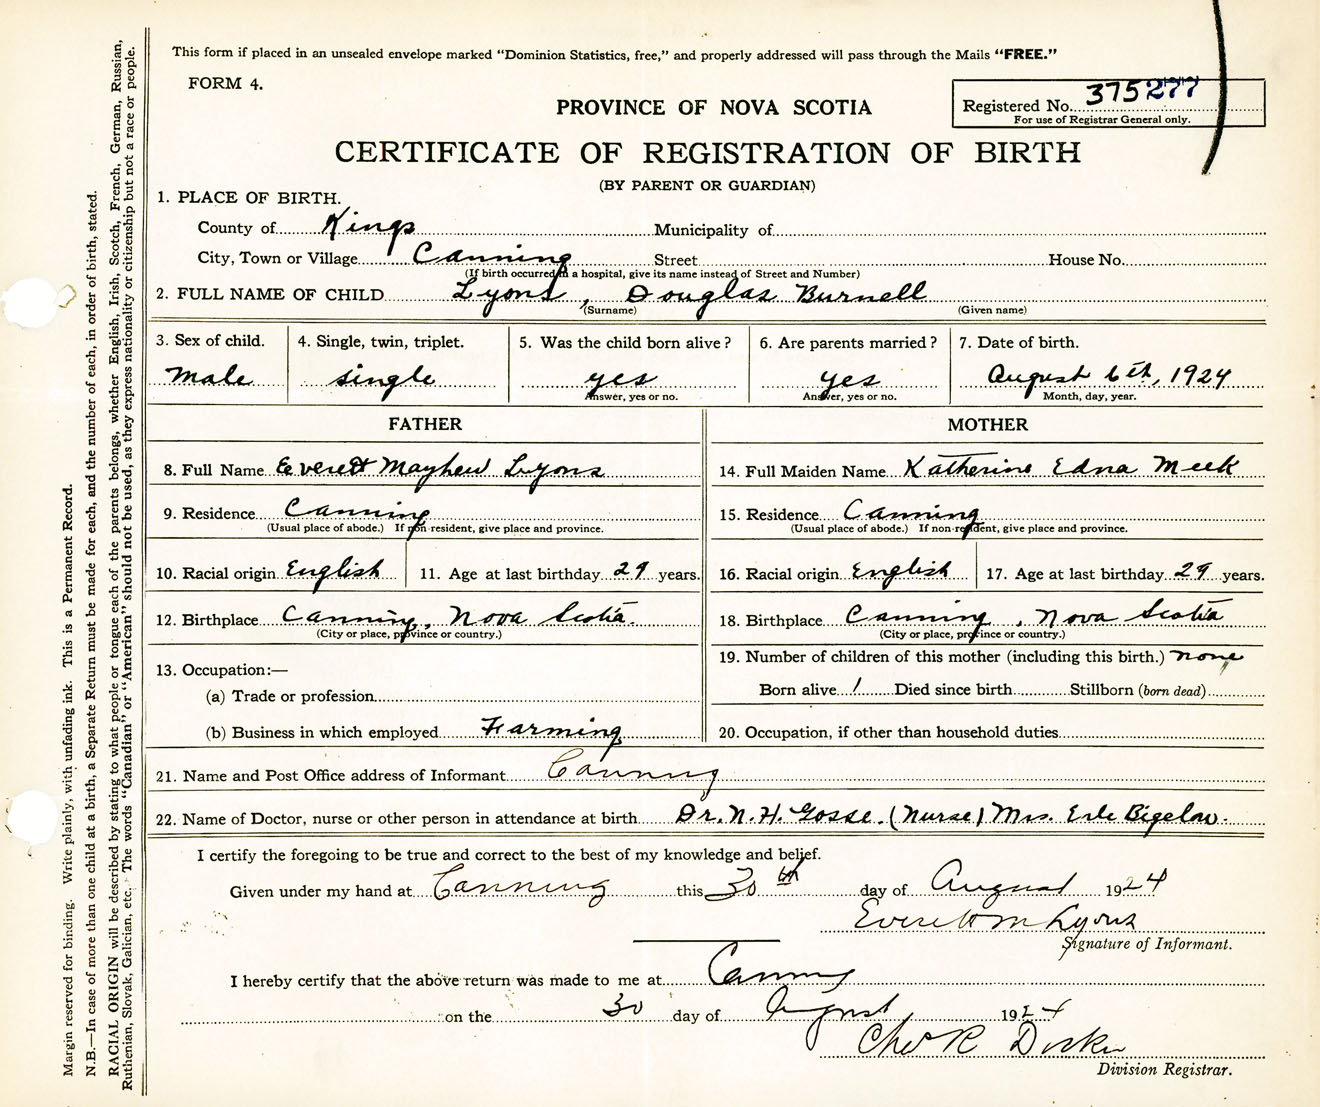 This form if placed in an unsealed envelope marked "Dominion Statistics, free," and properly addressed will pass through the Mails "FREE."
FORM 4.
Registered No. 375277
For use of Registrar General only.
PROVINCE OF NOVA SCOTIA
CERTIFICATE OF REGISTRATION OF BIRTH
(BY PARENT OR GUARDIAN)
1. PLACE OF BIRTH.
County of Kings Municipality of
City, Town or Village Canning Street House No.
(If birth occurred in a hospital, give its name instead of Street and Number)
2. FULL NAME OF CHILD Lyons, Douglas Burnell
(Surname) (Given name)
3. Sex of child. 4. Single, twin, triplet. 5. Was the child born alive? 6. Are parents married? 7. Date of birth.
male single yes yes August 6th, 1924
Answer, yes or no. Answer, yes or no. Month, day, year.
FATHER MOTHER
8. Full Name Everett Mayhew Lyons 14. Full Maiden Name Katherine Edna Meek
9. Residence Canning 15. Residence Canning
(Usual place of abode.) If non-resident, give place and province. (Usual place of abode.) If non-resident, give place and province.
10. Racial origin English 11. Age at last birthday 29 years. 16. Racial origin English 17. Age at last birthday 29 years.
12. Birthplace Canning, Nova Scotia. 18. Birthplace Canning, Nova Scotia
(City or place, province or country.) (City or place, province or country.)
13. Occupation:— 19. Number of children of this mother (including this birth.) none
(a) Trade or profession Born alive 1 Died since birth Stillborn (born dead)
(b) Business in which employed Farming 20. Occupation, if other than household duties
21. Name and Post Office address of Informant Canning
22. Name of Doctor, nurse or other person in attendance at birth Dr. N. H. Gosse. (Nurse) Mrs. Erle Bigelow.
I certify the foregoing to be true and correct to the best of my knowledge and belief.
Given under my hand at Canning this 30th day of August 1924
Everett M Lyons
Signature of Informant.
I hereby certify that the above return was made to me at Canning
on the 30 day of August 1924
Chas R
Division Registrar.
Margin reserved for binding. Write plainly, with unfading ink. This is a Permanent Record.
N.B.—In case of more than one child at a birth, a Separate Return must be made for each, and the number of each, in order of birth, stated.
RACIAL ORIGIN will be described by stating to what people or tongue each of the parents belongs, whether English, Irish, Scotch, French, German, Russian,
Ruthenian, Slovak, Galician, etc. The words "Canadian" or "American" should not be used, as they express nationality or citizenship but not a race or people.